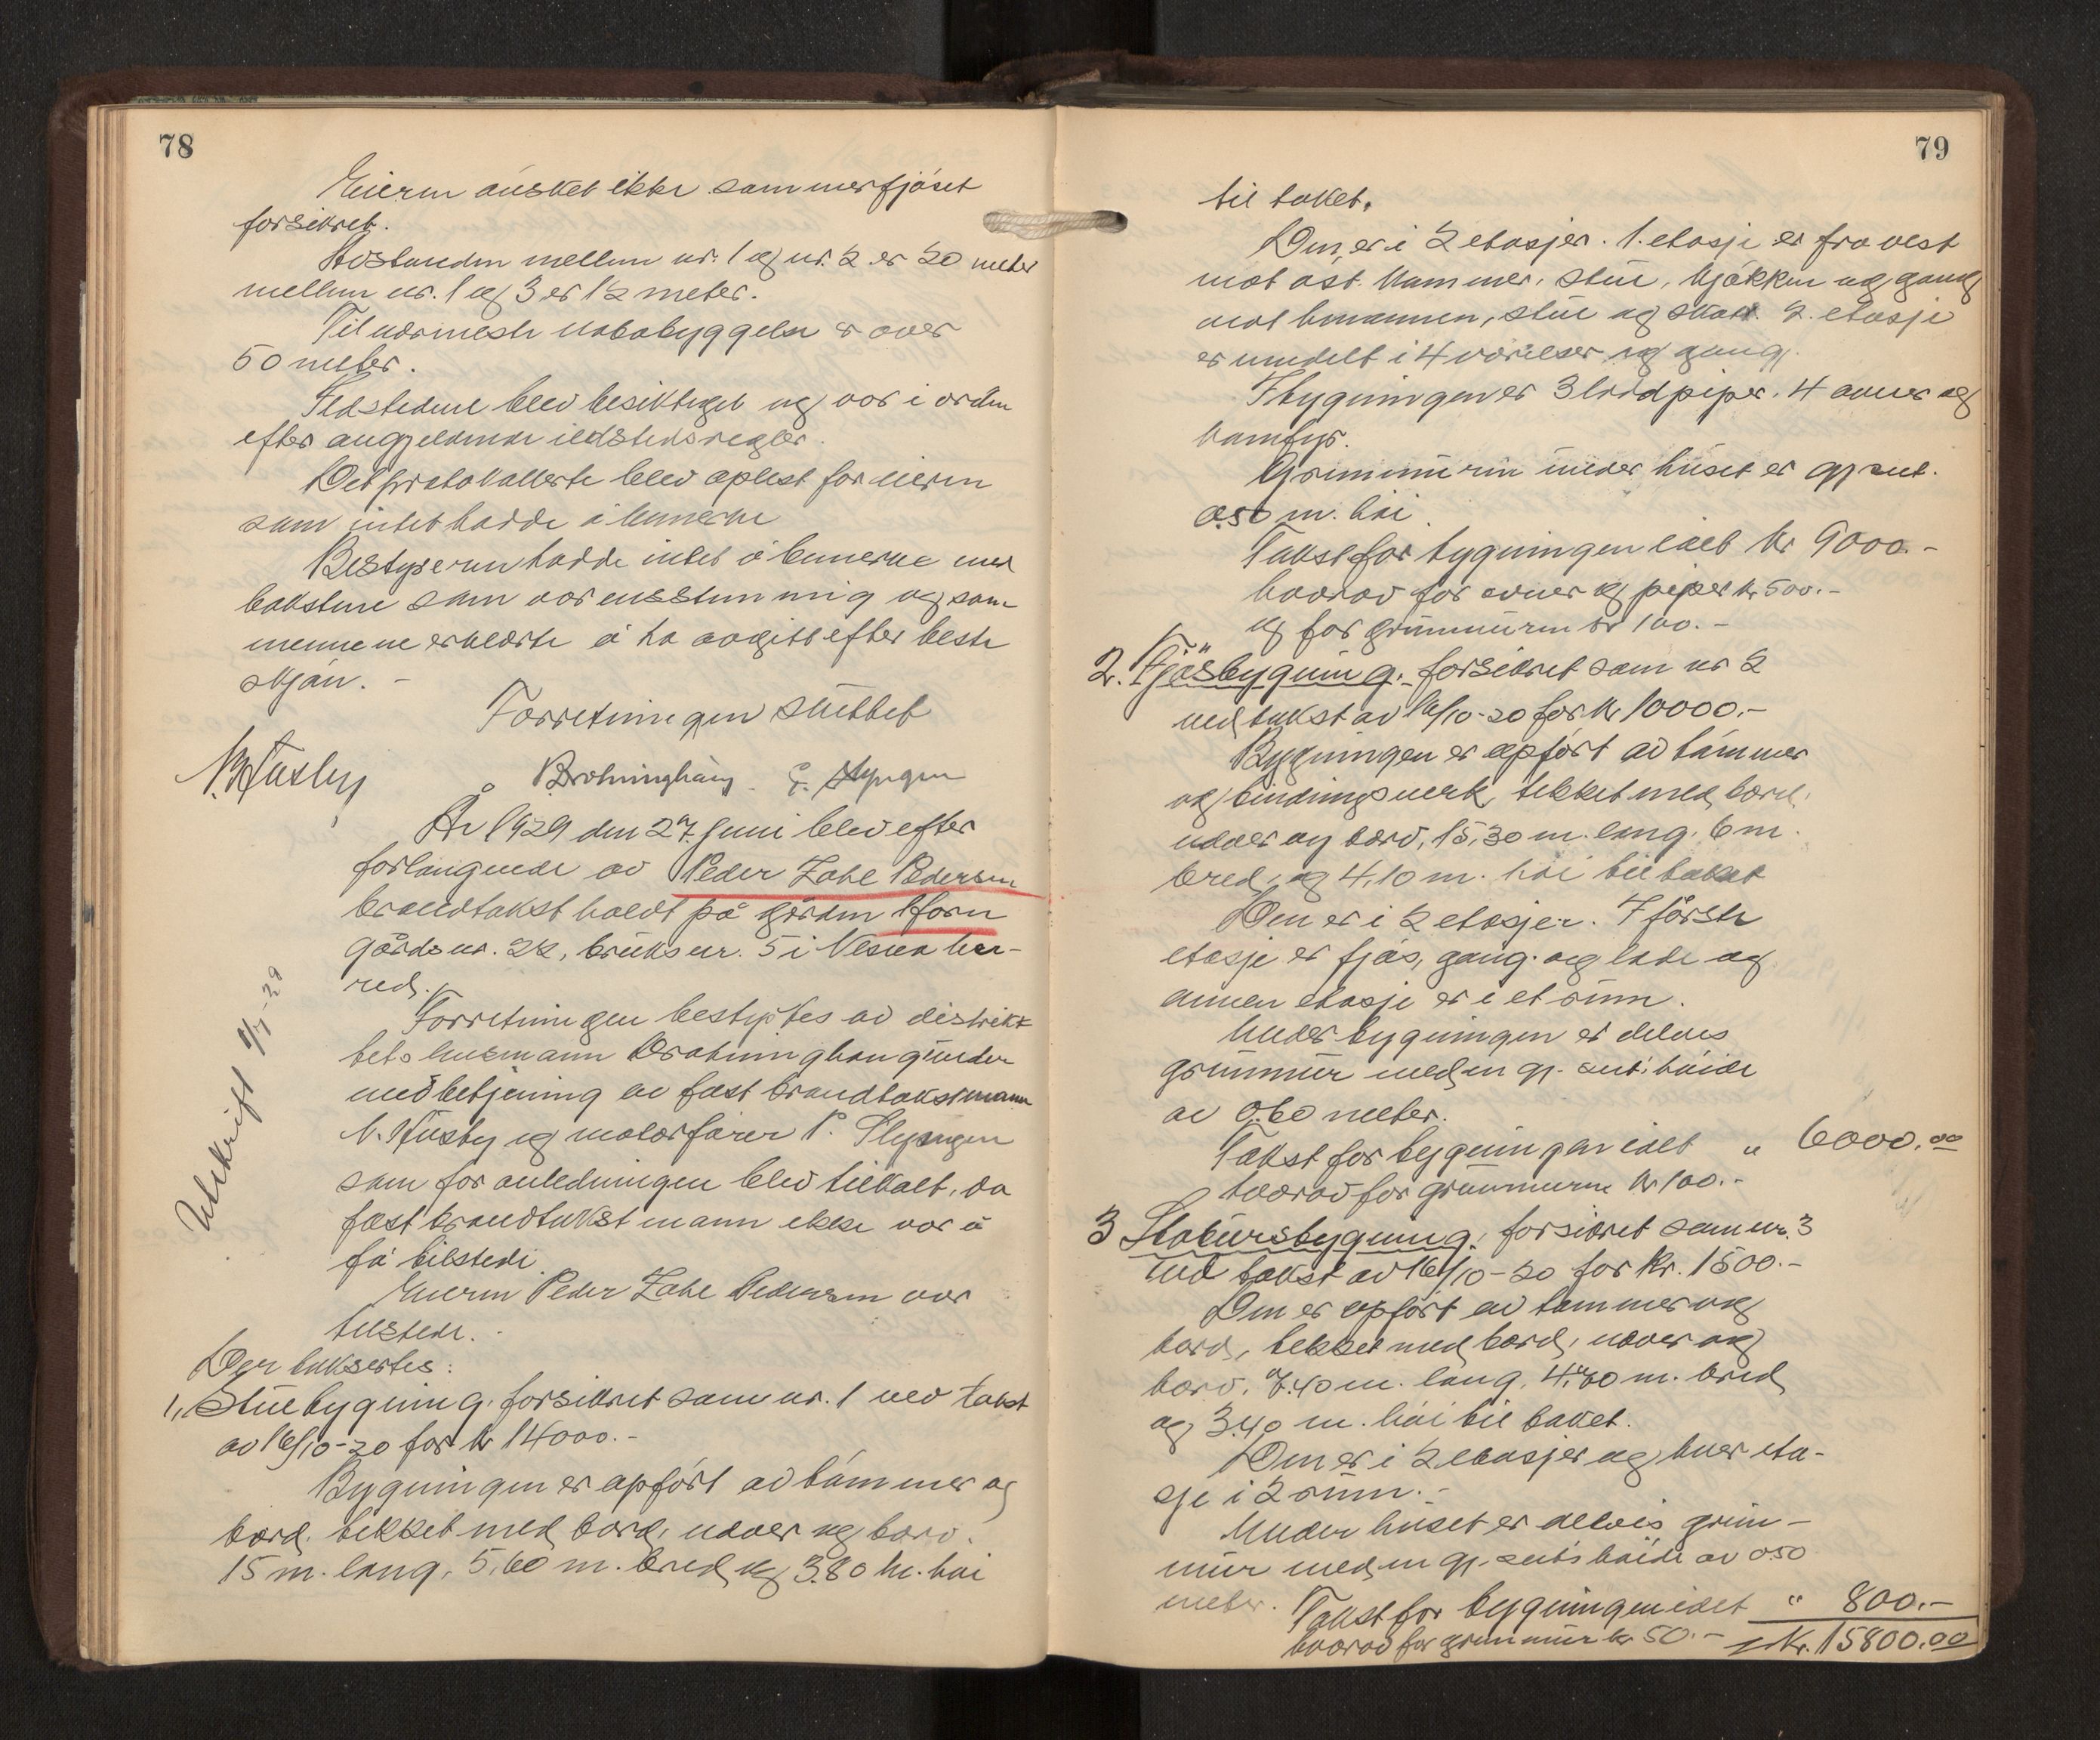 78
Eieren ønsket ikke sommerfjøset
forsikret.
Avstanden mellem nr. 1 og nr. 2 er 20 meter
mellem nr. 1 og 3 er 12 meter.
Til nærmeste nabobyggelse er over
50 meter.
Ildstedene blev besiktiget og var i orden
efter angjeldende ildstedsregler.
Det protokollerte blev oplest for eieren
som intet hadde å bemerke
Bestyreren hadde intet å bemerke med
takstene som var ensstemmig og som
mennene erklærte å ha avgitt efter beste
skjøn. -
Forretningen sluttet
N. Husby
År 1929 den 27. juni blev efter
forlangende av Peder Zahl Pedersen
brandtakst holdt på gården Horn
gårdsnr. 22, bruksnr. 5 i Vesna her-
red.
Forretningen bestyrtes av distrikk
tets lensmann Drotninghaug under
medbetjening av fast brandtakstmann
N. Husby og motorfører P.
som for anledningen blev tilkalt, da
fast brandtakstmann ikke var å
få tilstede.
Eieren Peder Zahl Pedersen var
tilstede.
Der takseertes:
1, Stuebygning. forsikret som nr. 1 ved takst
av 16/10-20 for kr 14000.-
Bygningen er opført av tømmer og
bord. tekket med bord, never og torv.
15 m. lang, 5,60 m. bred og 3.80 m. høi
Utskrift 9/7-29
79
til taket.
Den er i 2 etasjer. 1. etasje er fra vest
mot øst. kammer, stue, kjøkken og gang
mot stue og 2. etasje
er inndelt i 4 værelser og gang.
I bygningen er 3 livdpiper. 4 ovner og
komfyr.
Grunmuren under huset er gj.snt.
0.50 m. høi.
Takst for bygningen ialt kr 9000.-
hvorav for ovner og piper kr 500.-
og for grunmuren kr 100.-
2. Fjøsbygning. forsikret som nr 2
ved takst av 16/10-20 for kr 10000.-
Bygningen er opført av tømmer
og bindingsverk, tekket med bord,
never og torv, 15,30 m. lang, 6 m.
bred, og 4,10 m. høi til taket
Den er i 2 etasjer. I første
etasje er fjøs, gang og lade og
annen etasje er i et rum.
Under bygningen er delvis
grunmur med en gj. snt. høide
av 0.60 meter.
Takst for bygningen ialt " 6000.00
hvorav for grunmuren kr 100.-
3 Stabursbygning. forsikret som nr. 3
ved takst av 16/10-20 for kr. 1500.-
Den er opført av tømmer og
bord, tekket med bord, never og
torv. 7.40 m. lang, 4.40 m. bred
og 3.40 m. høi til taket.
Den er i 2 etasjer og hver eta-
sje i 2 rum. -
Under huset er delvis grun-
mur med en gj. snt's høide av 0.50
meter. Takst for bygningen ialt " 800.-
hvorav for grunmur kr 50.- kr. 15800.00